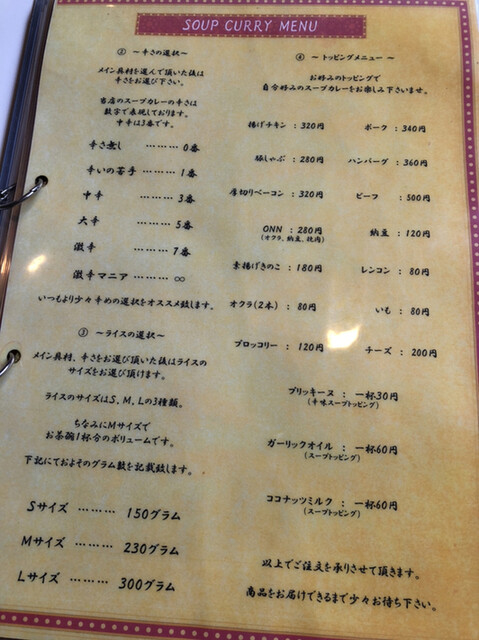 SOUP CURRY MENU
② ～辛さの選択～
メイン具材を選んで頂いた後は
辛さをお選び下さい。
当店のスープカレーの辛さは
数字で表現しております。
中辛は3番です。
辛さ無し ……… 0番
辛いの苦手 ……… 1番
中辛 ……… 3番
大辛 ……… 5番
激辛 ……… 7番
激辛マニア ……… ∞
いつもより少々辛めの選択をオススメ致します。
③ ～ライスの選択～
メイン具材、辛さをお選び頂いた後はライスの
サイズをお選び頂けます。
ライスのサイズはS、M、Lの3種類。
ちなみにMサイズで
お茶碗1杯分のボリュームです。
下記にておおよそのグラム数を記載致します。
Sサイズ ……… 150グラム
Mサイズ ……… 230グラム
Lサイズ ……… 300グラム
④ ～トッピングメニュー～
お好みのトッピングで
自分好みのスープカレーをお楽しみ下さいませ。
揚げチキン : 320円 ポーク : 340円
豚しゃぶ : 280円 ハンバーグ : 360円
厚切りベーコン : 320円 ビーフ : 500円
ONN : 280円 納豆 : 120円
(オクラ、納豆、挽肉)
素揚げきのこ : 180円 レンコン : 80円
オクラ(2本) : 80円 いも : 80円
ブロッコリー : 120円 チーズ : 200円
プリッキーヌ : 一杯30円
(辛味スープトッピング)
ガーリックオイル : 一杯60円
(スープトッピング)
ココナッツミルク : 一杯60円
(スープトッピング)
以上でご注文を承りさせて頂きます。
商品をお届けできるまで少々お待ち下さい。